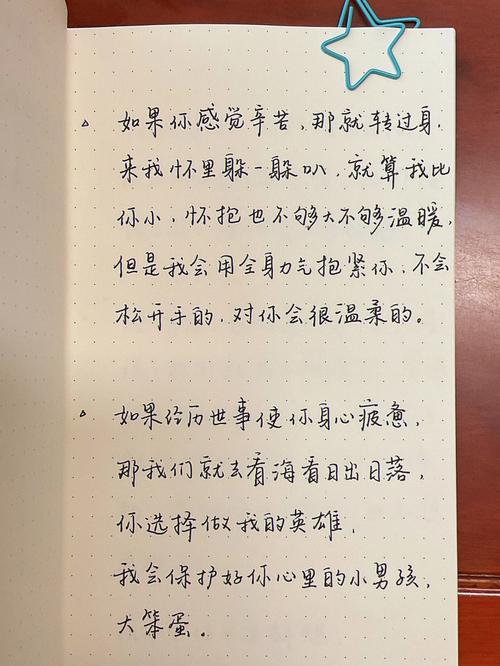 如果你感觉辛苦，那就转过身，
来我怀里躲一躲叭，就算我比
你小，怀抱也不够大不够温暖，
但是我会用全身力气抱紧你，不会
松开手的，对你会很温柔的。
如果经历世事使你身心疲惫，
那我们就去看海看日出日落，
你选择做我的英雄，
我会保护好你心里的小男孩，
大笨蛋。